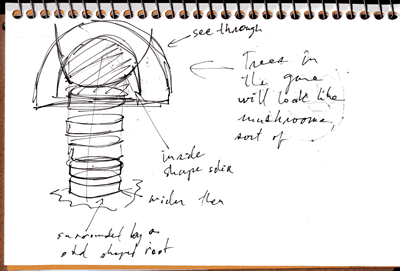 see through
Trees in
the game
will look like
mushrooms
sort of
inside
shape solid
wider then
surrounded by an
odd shaped root